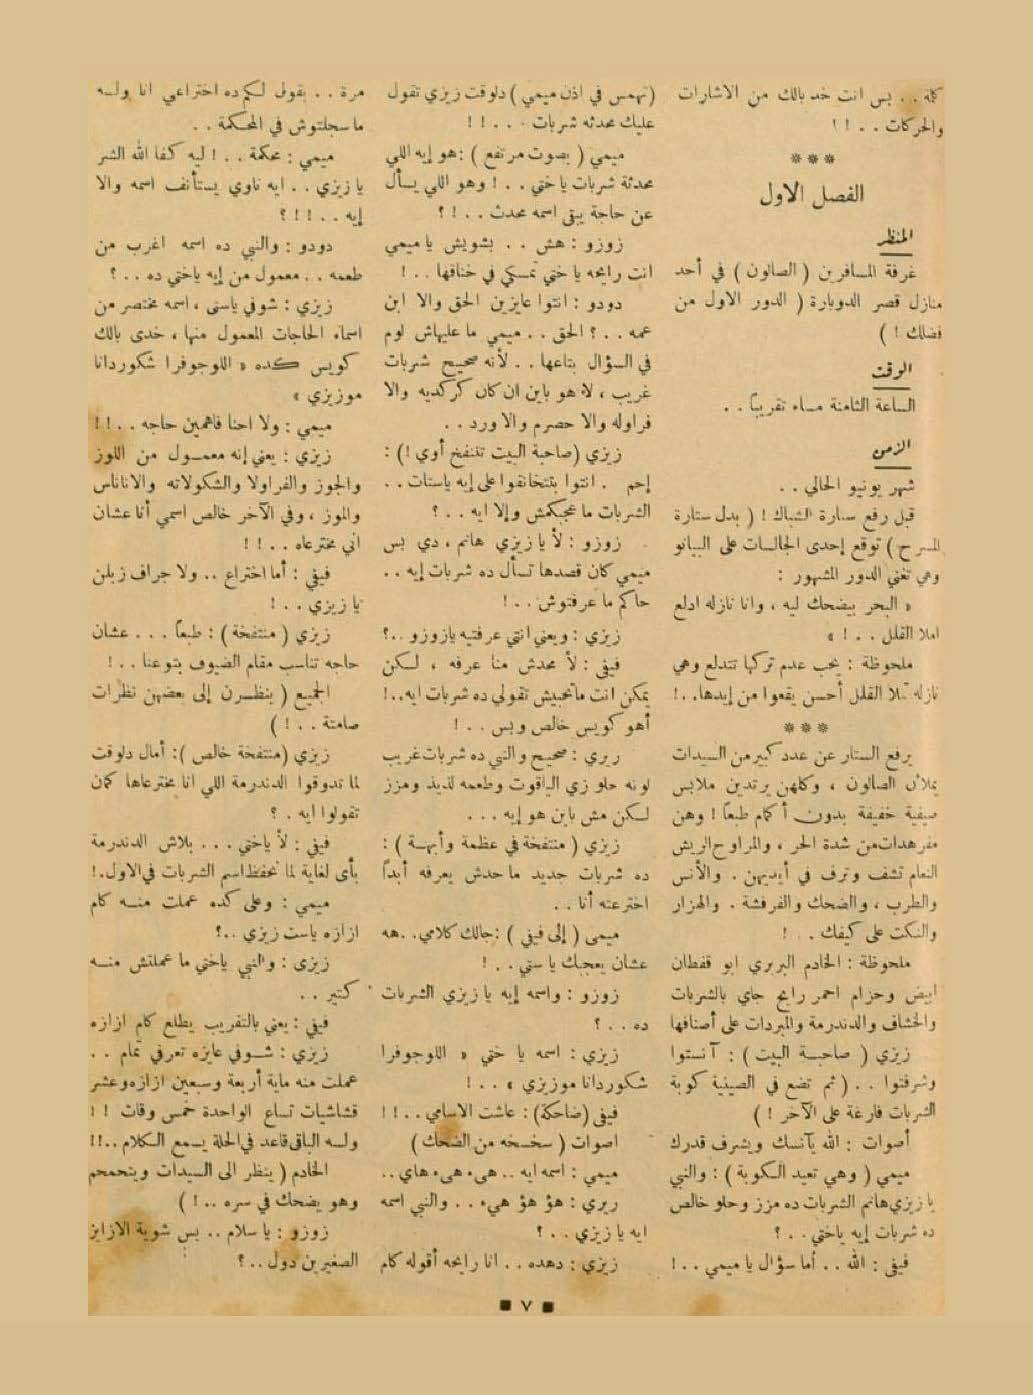 كلمة . . بس انت خد بالك من الاشارات
والحركات . . ! !
* * *
الفصل الاول
المنظر
غرفة المسافرين ( الصالون ) في أحد
منازل قصر الدوبارة ( الدور الاول من
فضلك ! )
الوقت
الساعة الثامنة مساء تقريباً . .
الزمن
شهر يونيو الحالي . .
قبل رفع ستارة الشباك ! ( بدل ستارة
المسرح ) توقع إحدى الجالسات على البيانو
وهي تغني الدور المشهور :
« البحر بيضحك ليه ، وانا نازله ادلع
املا القلل . . ! »
ملحوظة : يجب عدم تركها تتدلع وهي
نازله تملا القلل أحسن يقعوا من إيدها . . !
* * *
يرفع الستار عن عدد كبير من السيدات
يملأن الصالون ، وكلهن يرتدين ملابس
صيفية خفيفة بدون أكمام طبعاً ! وهن
مفرهدات من شدة الحر ، والمراوح الريش
النعام تشف وترف في أيديهن . والأنس
والطرب ، والضحك والفرفشة . والهزار
والنكت على كيفك . . !
ملحوظة : الخادم البربري ابو قفطان
ابيض وحزام احمر رايح جاي بالشربات
والخشاف والدندرمة والمبردات على أصنافها
زيزي ( صاحبة البيت ) : آنستوا
وشرفتوا . . ( ثم تضع في الصينية كوبة
الشربات فارغة على الآخر ! )
أصوات : الله يآنسك ويشرف قدرك
ميمي ( وهي تعيد الكوبة ) : والنبي
يا زيزي هانم الشربات ده مزز وحلو خالص
ده شربات إيه ياختي . . ؟
فيفي : الله . . أما سؤال يا ميمي . . !
( تهمس في اذن ميمي ) دلوقت زيزي تقول
عليك محدثه شربات . . . ! !
ميمي ( بصوت مرتفع ) : هو إيه اللي
محدثة شربات ياختي . . ! وهو اللي يسأل
عن حاجة يبقى اسمه محدث . . ! ؟
زوزو : هش . . بشويش يا ميمي
انت رايحه ياختي تمسكي في خناقها . . !
دودو : انتوا عايزين الحق والا ابن
عمه . . ؟ الحق . . ميمي ما عليهاش لوم
في السؤال بتاعها . . لأنه صحيح شربات
غريب ، لا هو باين ان كان كركديه والا
فراوله والا حصرم والا ورد . .
زيزي ( صاحبة البيت تتنفخ أوي ! ) :
إحم . انتوا بتتخانقوا على إيه ياستات . .
الشربات ما عجبكمش وإلا ايه . . ؟
زوزو : لأ يا زيزي هانم ، دي بس
ميمي كان قصدها تسأل ده شربات إيه . .
حاكم ما عرفتوش . . !
زيزي : ويعني انتي عرفتيه يازوزو . . ؟
فيفي : لأ محدش منا عرفه ، لكن
يمكن انت ماتحبيش تقولي ده شربات ايه . . !
أهو كويس خالص وبس . . !
ريري : صحيح والنبي ده شربات غريب
لونه حلو زي الياقوت وطعمه لذيذ ومزز
لكن مش باين هو إيه . . .
زيزي ( منتفخة في عظمة وأبهة ) :
ده شربات جديد ماحدش يعرفه أبداً
اخترعته أنا . .
ميمى ( إلى فيفي ) : جالك كلامي . . هه
عشان يعجبك يا ستي . . !
زوزو : واسمه إيه يا زيزي الشربات
ده . . ؟
زيزي : اسمه يا ختي « اللوجوفرا
شكوردانا موزيزي » . . !
فيفي ( ضاحكة ) : عاشت الاسامي . . ! !
اصوات ( سخسخه من الضحك )
ميمي : اسمه ايه . . هيء هيء هاي . .
ريري : هؤ هؤ هيء . . والنبي اسمه
ايه يا زيزي . . ؟
زيزي : دهده . . انا رايحه أقوله كام
مرة . . بقول لكم ده اختراعي انا ولسه
ما سجلتوش في المحكمة . .
ميمي : محكمة . . ! ليه كفا الله الشر
يا زيزي . . ايه ناوي يستأنف اسمه والا
إيه . . ! ! ! ؟
دودو : والنبي ده اسمه اغرب من
طعمه . . معمول من إيه ياختي ده . . ؟
زيزي : شوفي ياستى ، اسمه مختصر من
اسماء الحاجات المعمول منها ، خدى بالك
كويس كده « اللوجوفرا شكوردانا
موزيزي »
ميمي : ولا احنا فاهمين حاجه . . ! !
زيزي : يعني إنه معمول من اللوز
والجوز والفراولا والشكولاته والاناناس
والموز ، وفي الآخر خالص اسمي أنا عشان
اني مخترعاه . . ! !
فيفي : أما اختراع . . ولا جراف زبلن
يا زيزي . . !
زيزي ( منتفخة ) : طبعاً . . . عشان
حاجه تناسب مقام الضيوف بتوعنا . . !
الجميع ( ينظرن إلى بعضهن نظرات
صامتة . . ! )
زيزي ( منتفخة خالص ) : أمال دلوقت
لما تدوقوا الدندرمة اللي انا مخترعاها كمان
تقولوا ايه . . ؟
فيفي : لأ ياختي . . . بلاش الدندرمة
بأى لغاية لما نحفظ اسم الشربات في الاول . !
ميمي : وعلى كده عملت منه كام
ازازه ياست زيزي . . ؟
زيزى : والنبي ياختي ما عملتش منه
كتير . .
فيفي : يعني بالتقريب يطلع كام ازازه
زيزي : شوفي عايزه تعرفي تمام . .
عملت منه ماية أربعة وسبعين ازازه وعشر
قشاشيات تساع الواحدة خمس وقات ! !
ولسه الباقى قاعد في الحلة يسمع الكلام . . ! !
الخادم ( ينظر الى السيدات ويتحمحم
وهو يضحك في سره . . ! )
زوزو : يا سلام . . بس شوية الازايز
الصغيرين دول . . ؟
■ ٧ ■